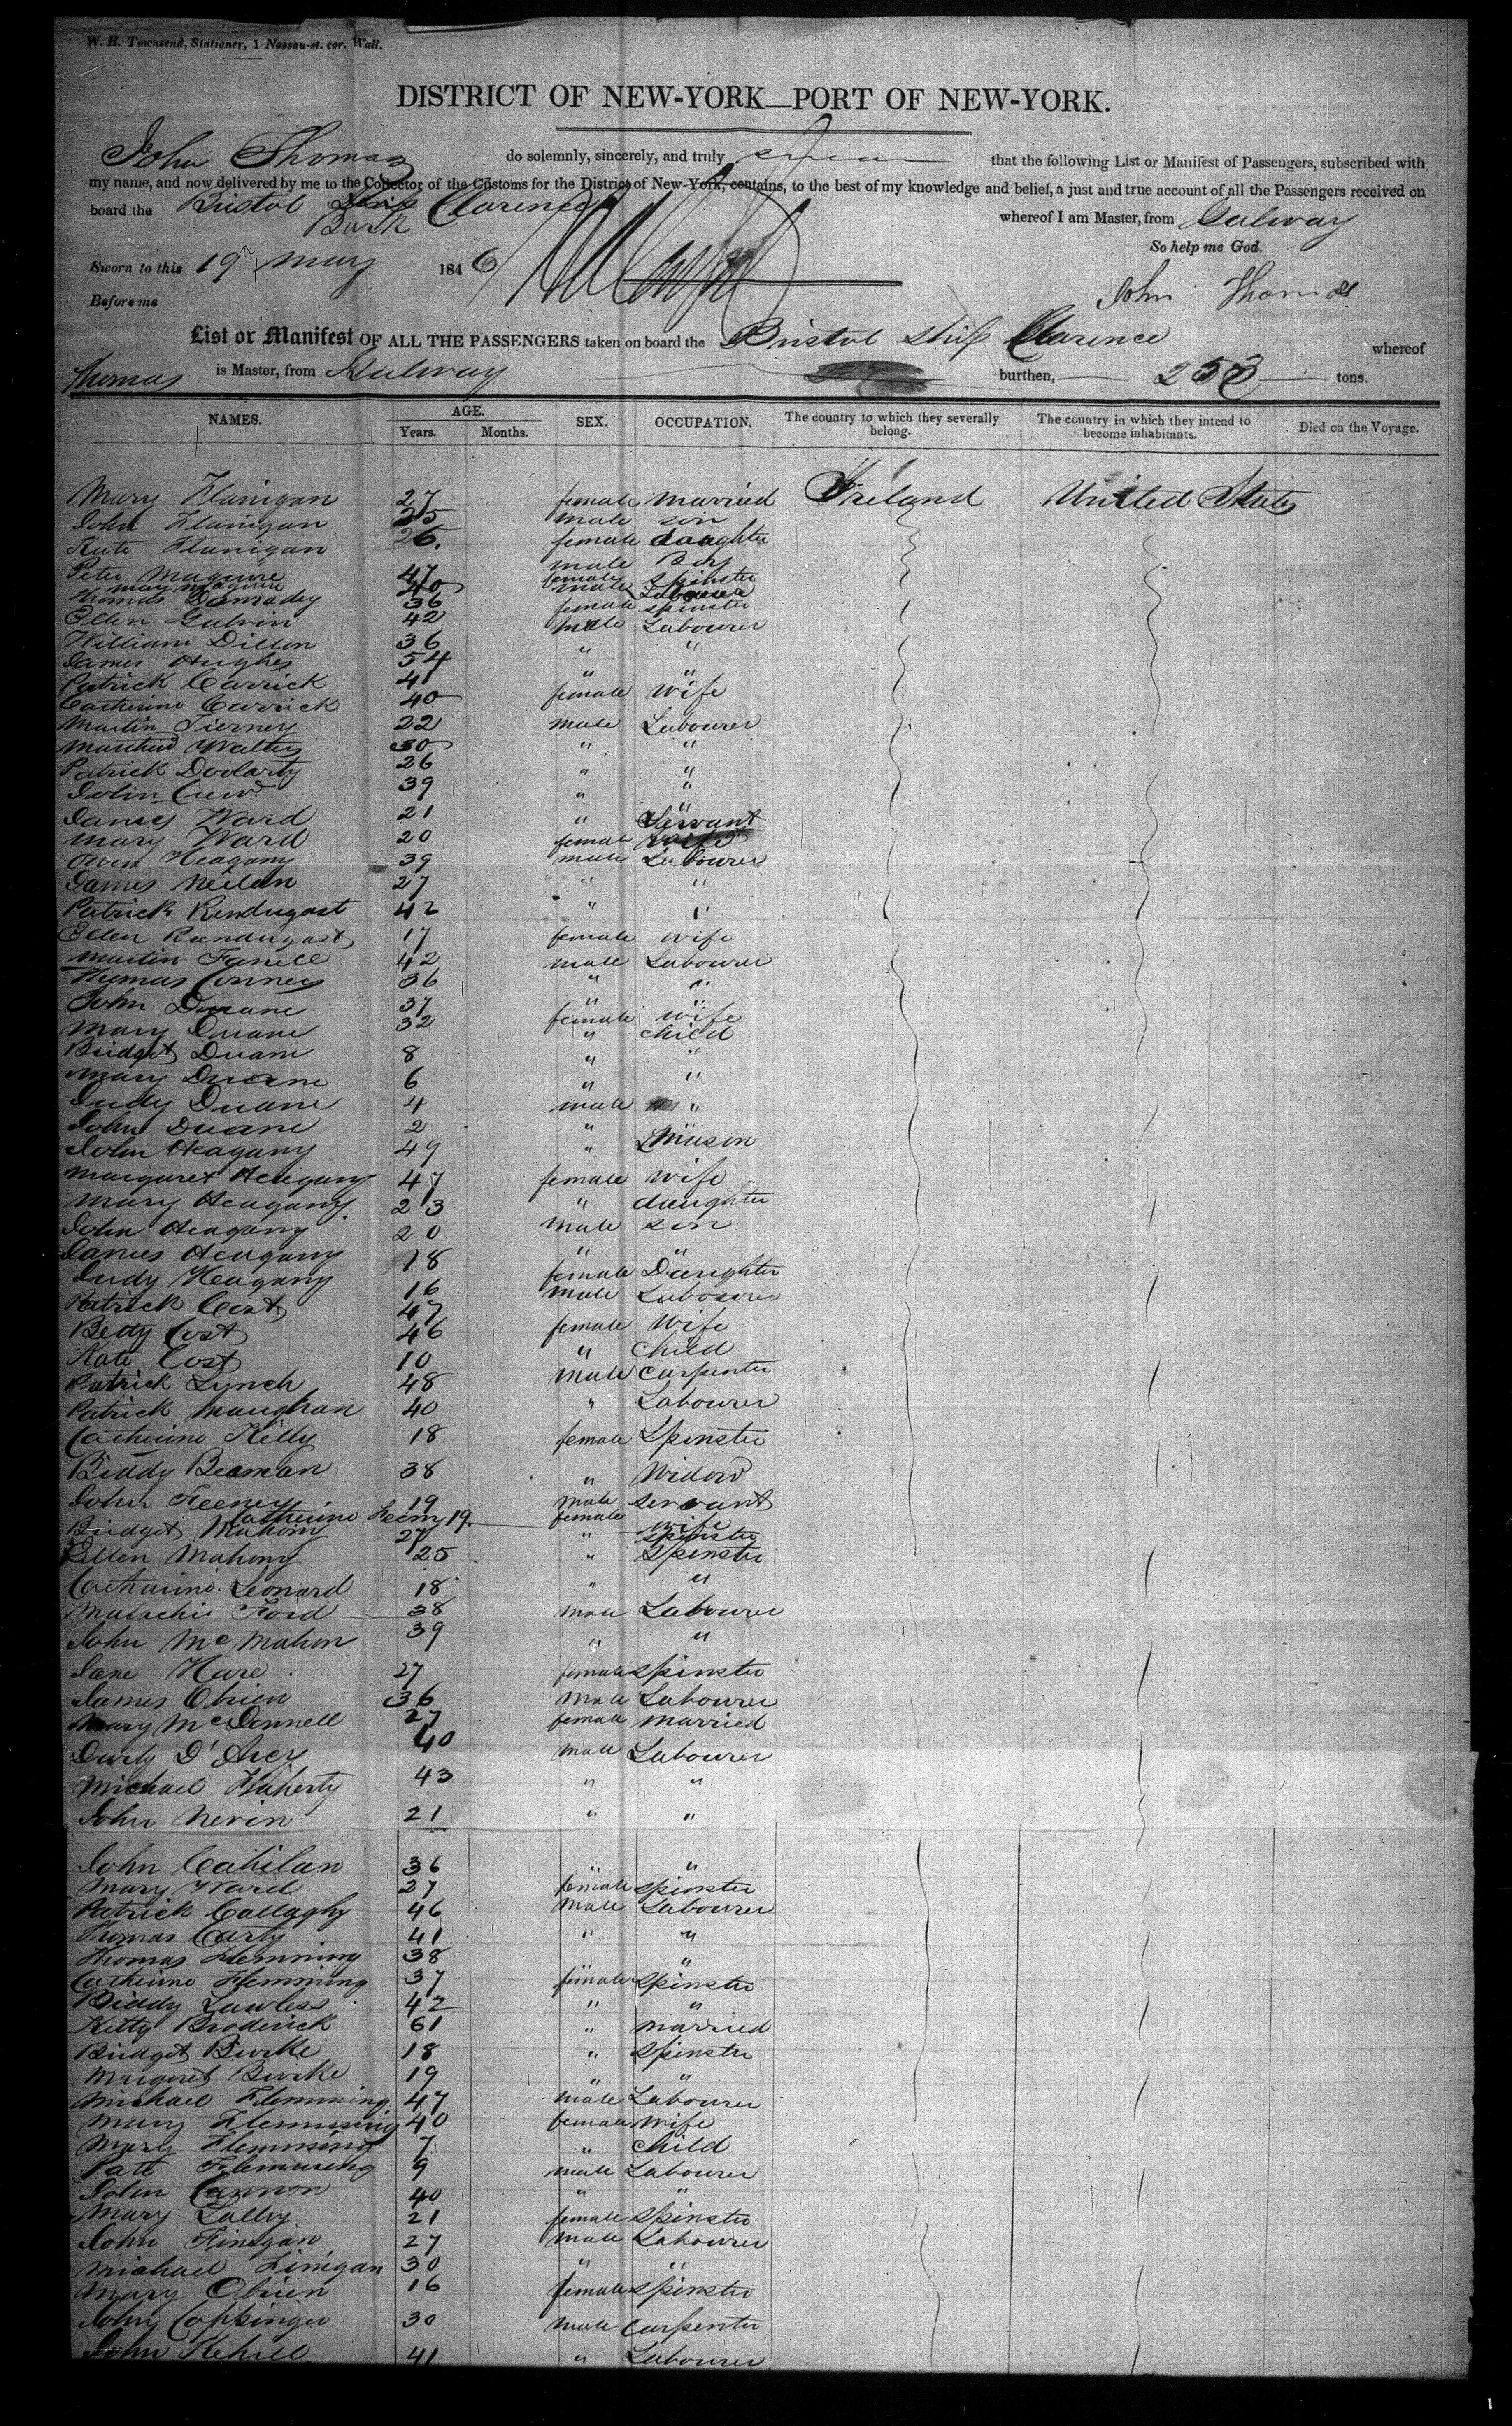 W. H. Townsend, Stationer, 1 Nassau-st. cor. Wall.
DISTRICT OF NEW-YORK—PORT OF NEW-YORK.
John Thomas do solemnly, sincerely, and truly swear that the following List or Manifest of Passengers, subscribed with
my name, and now delivered by me to the Collector of the Customs for the District of New-York, contains, to the best of my knowledge and belief, a just and true account of all the Passengers received on
board the Bristol Ship Clarence whereof I am Master, from Galway
Bark
So help me God.
Sworn to this 19 May 1846
John Thomas
Before me
List or Manifest OF ALL THE PASSENGERS taken on board the Bristol Ship Clarence whereof
Thomas is Master, from Galway burthen, 253 tons.
NAMES. AGE. SEX. OCCUPATION. The country to which they severally belong. The country in which they intend to become inhabitants. Died on the Voyage.
Years. Months.
Mary Flanigan 27 female married Ireland United States
John Flanigan 25 male son
Kate Flanigan 26. female daughter
Peter Maguire 47 male Boy
Mary Maguire 40 female spinster
Thomas 36 male Labourer
Ellen Galvin 42 female spinster
William Dillon 36 male Labourer
James Hughes 54 " "
Patrick Carrick 41 " "
Catherine Carrick 40 female wife
Martin Tierney 22 male Labourer
Walters 30 " "
Patrick Doolarty 26 " "
John 39 " "
James Ward 21 " " Servant
Mary Ward 20 female wife
Owen Heagany 39 male Labourer
James Neilan 27 " "
Patrick Rendugast 42 " "
Ellen Rendugast 17 female wife
Martin Farrell 42 male Labourer
Thomas Conney 36 " "
John Duane 37 " "
Mary Duane 32 female wife
Bridget Duane 8 " child
Mary Duane 6 " "
Judy Duane 4 " "
John Duane 2 male "
John Heagany 49 " " Mason
Margaret Heagany 47 female wife
Mary Heagany 23 " daughter
John Heagany 20 male son
James Heagany 18 " "
Judy Heagany 16 female Daughter
Patrick Cost 47 male Labourer
Betty Cost 46 female Wife
Kate Cost 10 " child
Patrick Lynch 48 male carpenter
Patrick Maughan 40 " Labourer
Catherine Kelly 18 female Spinster
Biddy Beaman 38 " Widow
John Feeney 19 male servant
Catherine Feeny 19. female wife
Bridget Mahony 27 " spinster
Ellen Mahony 25 " Spinster
Catherine Leonard 18 " "
Malachi Ford 38 male Labourer
John McMahon 39 " "
Jane Hare 27 female spinster
James Obrien 36 male Labourer
Mary McDonnell 27 female married
Darly D'Arcy 40 male Labourer
Michael Flaherty 43 " "
John Nevin 21 " "
John Cahilan 36 " "
Mary Ward 27 female spinster
Patrick Callaghy 46 male Labourer
Thomas Carty 41 " "
Thomas Flemming 38 " "
Catherine Flemming 37 female spinster
Biddy Lawless 42 " "
Kitty Broderick 61 " married
Bridget Burke 18 " Spinster
Margaret Burke 19 " "
Michael Flemming 47 male Labourer
Mary Flemming 40 female wife
Mary Flemming 7 " child
Patt Flemming 9 male Labourer
John Cannon 40 " "
Mary Lally 21 female spinster
John Finegan 27 male Labourer
Michael Finigan 30 " "
Mary Obrien 16 female spinster
John Coppinger 30 male Carpenter
John Kehill 41 " Labourer